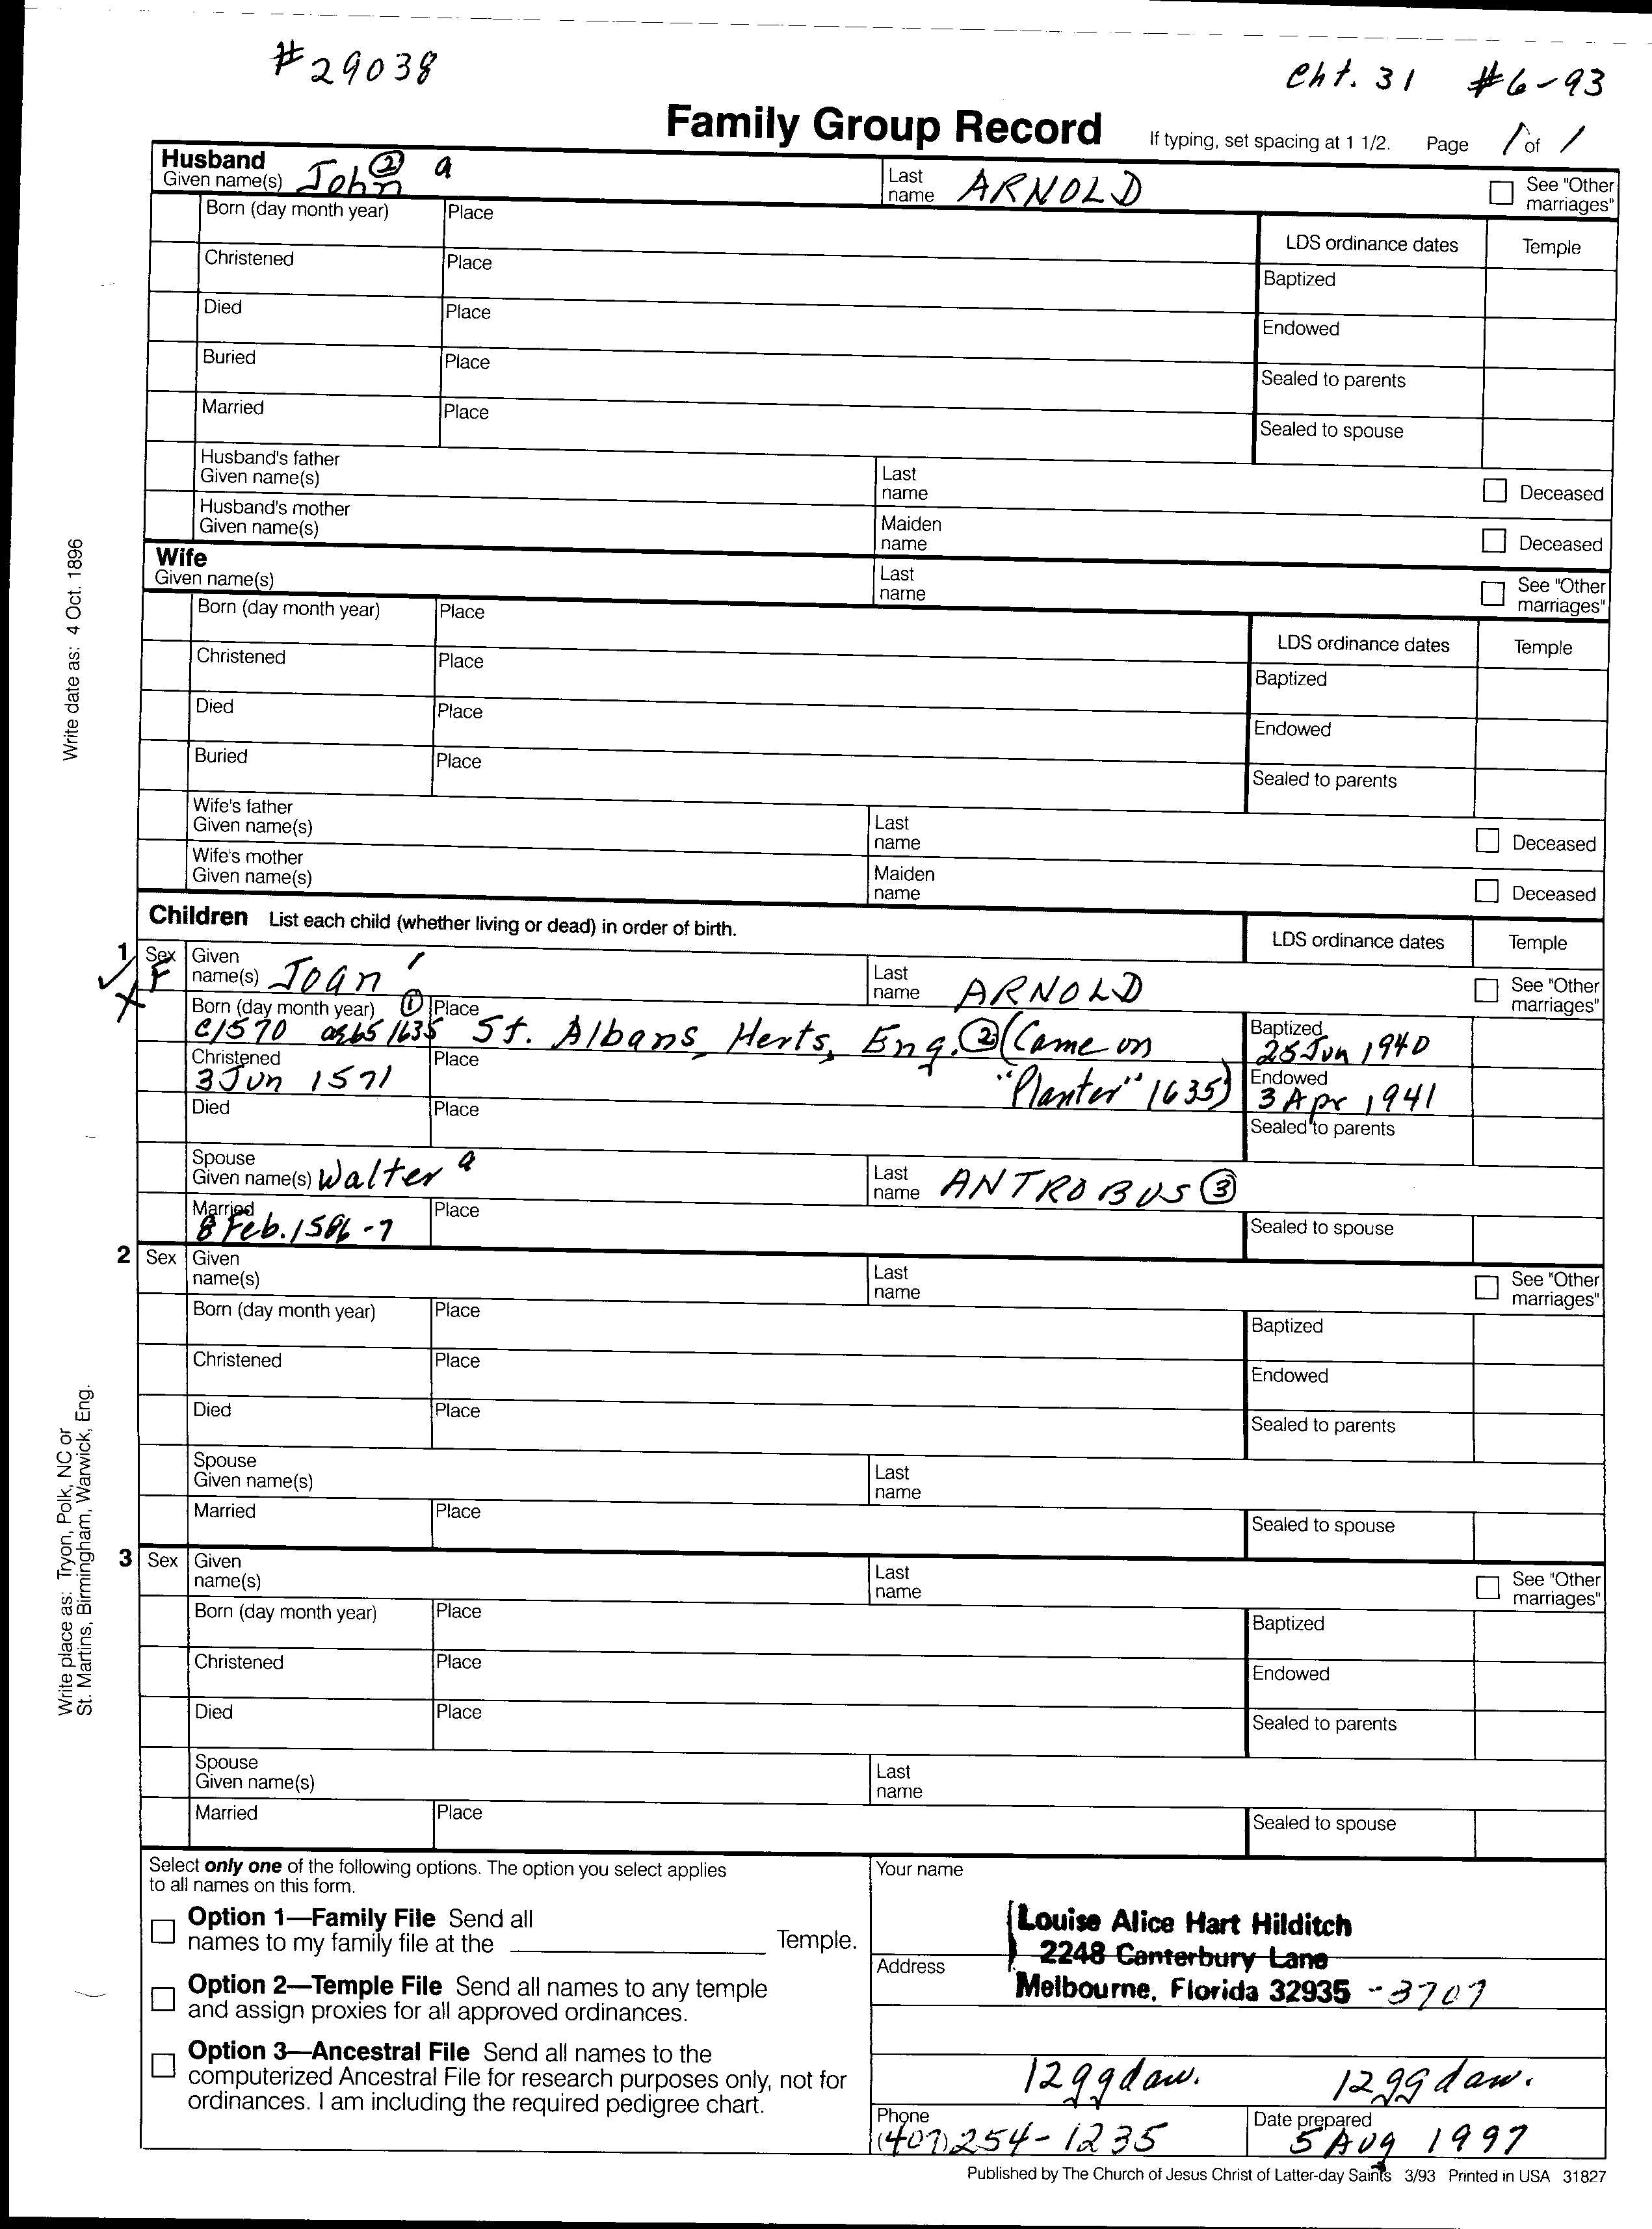 #29038
Cht. 31 #6-93
Family Group Record If typing, set spacing at 1 1/2. Page 1 of 1
Husband
Given name(s) John ② a Last name ARNOLD See "Other marriages"
Born (day month year) Place
LDS ordinance dates Temple
Christened Place
Baptized
Died Place
Endowed
Buried Place
Sealed to parents
Married Place
Sealed to spouse
Husband's father
Given name(s) Last name Deceased
Husband's mother
Given name(s) Maiden name Deceased
Wife
Given name(s) Last name See "Other marriages"
Born (day month year) Place
LDS ordinance dates Temple
Christened Place
Baptized
Died Place
Endowed
Buried Place
Sealed to parents
Wife's father
Given name(s) Last name Deceased
Wife's mother
Given name(s) Maiden name Deceased
Children List each child (whether living or dead) in order of birth.
LDS ordinance dates Temple
1 Sex F Given name(s) Joan Last name ARNOLD See "Other marriages"
Born (day month year) ① Place
c1570 65 1635 St. Albans, Herts, Eng. ② (Came on
Baptized 25 Jun 1940
Christened 3 Jun 1571 Place "Planter" 1635)
Endowed 3 Apr 1941
Died Place
Sealed to parents
Spouse
Given name(s) Walter a Last name ANTROBUS ③
Married 8 Feb. 1586-7 Place
Sealed to spouse
2 Sex Given name(s) Last name See "Other marriages"
Born (day month year) Place
Baptized
Christened Place
Endowed
Died Place
Sealed to parents
Spouse
Given name(s) Last name
Married Place
Sealed to spouse
3 Sex Given name(s) Last name See "Other marriages"
Born (day month year) Place
Baptized
Christened Place
Endowed
Died Place
Sealed to parents
Spouse
Given name(s) Last name
Married Place
Sealed to spouse
Write date as: 4 Oct. 1896
Write place as: Tryon, Polk, NC or
St. Martins, Birmingham, Warwick, Eng.
Select only one of the following options. The option you select applies
to all names on this form.
Option 1—Family File Send all
names to my family file at the Temple.
Option 2—Temple File Send all names to any temple
and assign proxies for all approved ordinances.
Option 3—Ancestral File Send all names to the
computerized Ancestral File for research purposes only, not for
ordinances. I am including the required pedigree chart.
Your name
Louise Alice Hart Hilditch
Address
2248 Canterbury Lane
Melbourne, Florida 32935 -3707
12ggdaw. 12ggdaw.
Phone
(407) 254-1235
Date prepared
5 Aug 1997
Published by The Church of Jesus Christ of Latter-day Saints 3/93 Printed in USA 31827